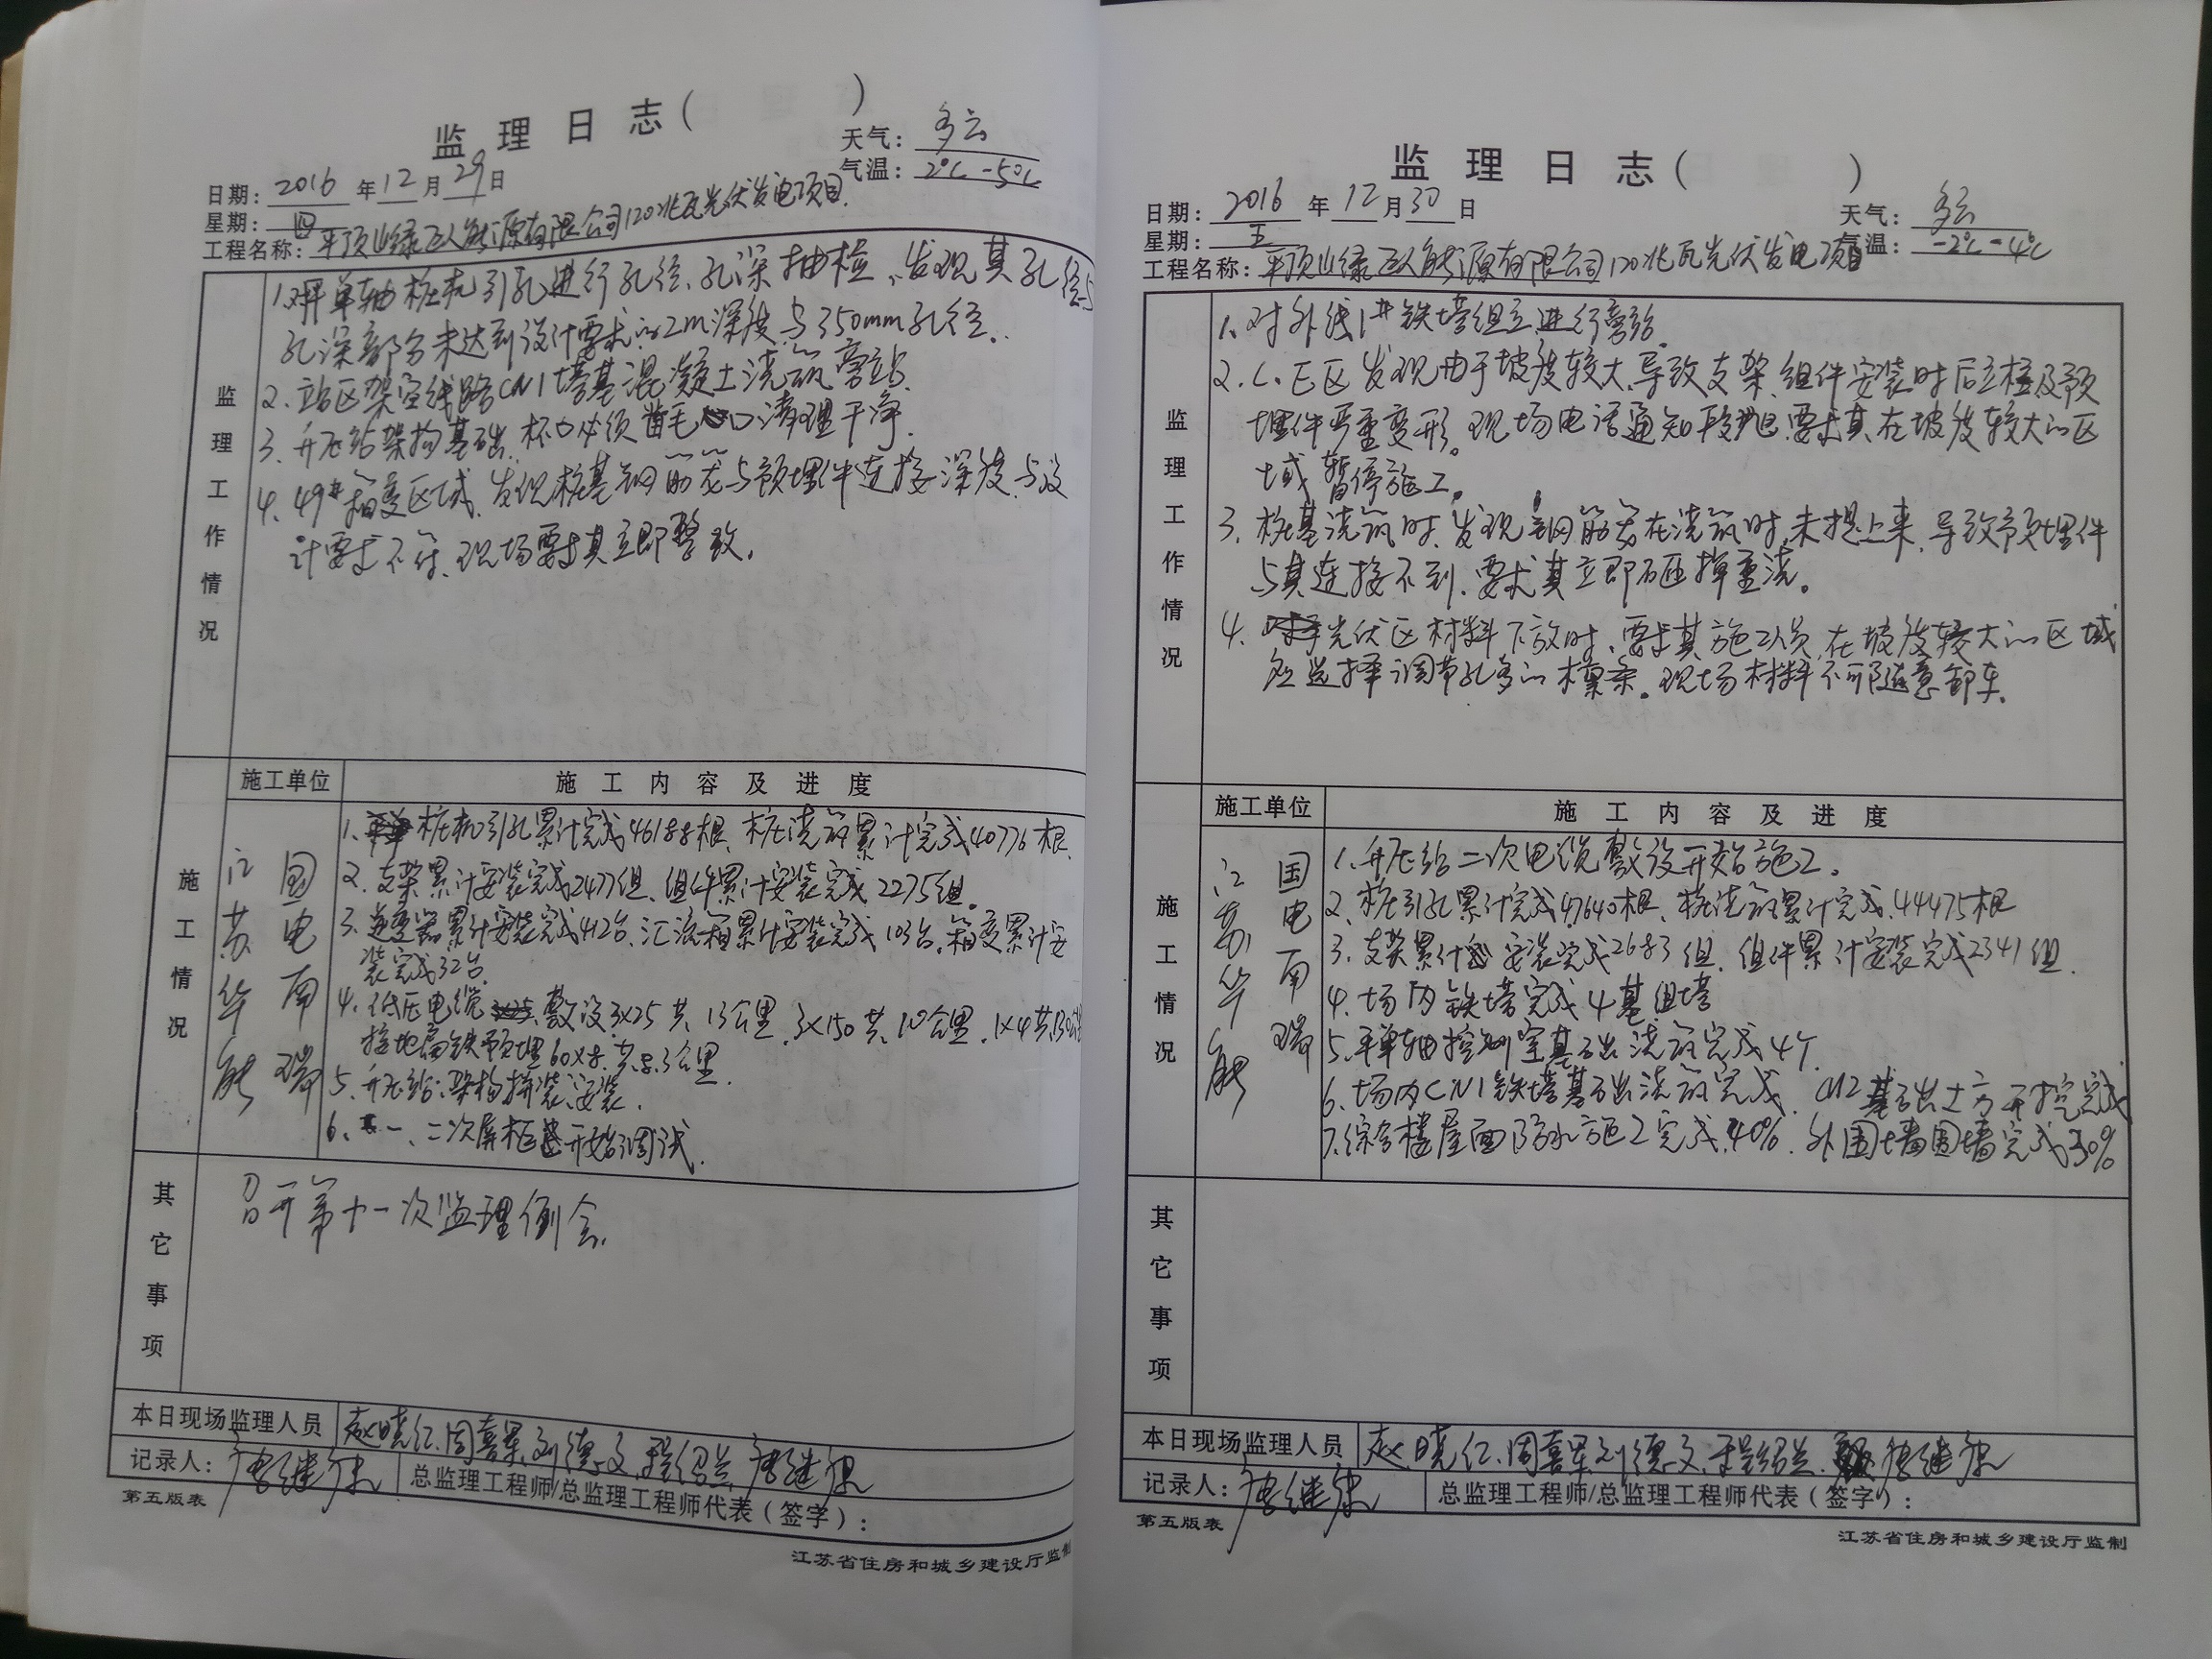 监理日志（ ）
天气：多云
日期：2016年12月29日
气温：2℃-5℃
星期：四
工程名称：平顶山绿巨人能源有限公司120兆瓦光伏发电项目.
监理工作情况
1.对平单轴桩机引孔进行孔径、孔深抽检，发现其孔径与
孔深部分未达到设计要求的2m深度与350mm孔径.
2、站区架空线路CN1塔基混凝土浇筑旁站.
3、升压站架构基础、杯口必须凿毛 口清理干净.
4、49#箱变区域、发现桩基钢筋笼与预埋件连接深度与设
计要求不符、现场要求其立即整改.
施工情况
施工单位 施工内容及进度
江苏华能
国电南瑞
1、桩机引孔累计完成46188根、桩浇筑累计完成40776根.
2、支架累计安装完成2477组、组件累计安装完成2275组.
3、逆变器累计安装完成412台、汇流箱累计安装完成103台、箱变累计安
装完成32台.
4、低压电缆敷设3x25共13公里、3x150共10公里、1x4共130公里
接地扁铁预埋60x8、共8.3公里.
5、升压站：架构拼装、安装.
6、一、二次屏柜开始调试.
其它事项
召开第十一次监理例会.
本日现场监理人员 赵晓红、周喜军、刘德文、程绍兰、唐继
记录人：唐继
总监理工程师/总监理工程师代表（签字）：
第五版表
江苏省住房和城乡建设厅监制
监理日志（ ）
日期：2016年12月30日
天气：多云
星期：五
气温：-2℃-4℃
工程名称：平顶山绿巨人能源有限公司120兆瓦光伏发电项目
监理工作情况
1、对外线1#铁塔组立进行旁站.
2、C、E区发现由于坡度较大、导致支架、组件安装时后立柱及预
埋件严重变形。现场电话通知 、要求其在坡度较大的区
域暂停施工。
3、桩基浇筑时、发现钢筋笼在浇筑时未提上来、导致预埋件
与其连接不到、要求其立即砸掉重浇。
4、光伏区材料下放时、要求其施工人员在坡度较大的区域
应选择调节孔多的檩条。现场材料不能随意卸车.
施工情况
施工单位 施工内容及进度
江苏华能
国电南瑞
1、升压站二次电缆敷设开始施工。
2、桩引孔累计完成47640根、桩浇筑累计完成44475根
3、支架累计安装完成2683组、组件累计安装完成2341组.
4、场内铁塔完成4基组塔
5、平单轴控制室基础浇筑完成4个.
6、场内CN1铁塔基础浇筑完成、CN2基础土方开挖完成
7、综合楼屋面防水施工完成40%、外围墙围墙完成30%
其它事项
本日现场监理人员 赵晓红、周喜军、刘德文、程绍兰、唐继
记录人：唐继
总监理工程师/总监理工程师代表（签字）：
第五版表
江苏省住房和城乡建设厅监制